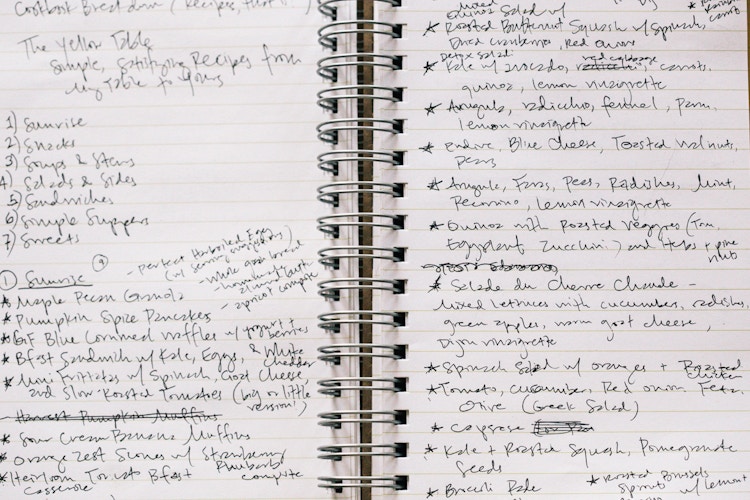 Cookbook Breakdown (Recipes
The Yellow Table
Simple, Satisfying Recipes from
my Table to Yours
1) Sunrise
2) Snacks
3) Soups & Stews
4) Salads & Sides
5) Sandwiches
6) Simple Suppers
7) Sweets
① Sunrise
⑨
- perfect Hardboiled Eggs
- whole grain bread
- apricot compote
* Maple Pecan Granola
* Pumpkin Spice Pancakes
* GF Blue Cornmeal Waffles w/ yogurt + berries
* Bfast Sandwich w/ Kale, Eggs, & White Cheddar
* Mini Frittatas w/ Spinach, Goat Cheese
and Slow-Roasted Tomatoes (big or little version!)
Harvest Pumpkin Muffins
* Sour Cream Banana Muffins
* Orange Zest Scones w/ Strawberry Rhubarb compote
* Heirloom Tomato Bfast
Casserole
Quinoa Salad w/
* Roasted Butternut Squash w/ Spinach,
Dried cranberries, Red onion
Detox Salad
* Kale w/ avocado, radicchio, red cabbage, carrots,
quinoa, lemon vinaigrette
* Arugula, radicchio, fennel, parm,
lemon vinaigrette
* Endive, Blue Cheese, Toasted Walnuts,
Pears
* Arugula, Favas, Peas, Radishes, Mint,
Pecorino, Lemon vinaigrette
* Quinoa with Roasted Veggies (Tom,
Eggplant, Zucchini) and Herbs + pine nuts
* Salade du Chevre Chaude -
mixed lettuces with cucumbers, radishes,
green apples, warm goat cheese,
Dijon vinaigrette
* Spinach Salad w/ oranges + Roasted Chicken
* Tomato, cucumber, Red onion, Feta,
Olive (Greek Salad)
* Caprese
* Kale + Roasted Squash, Pomegranate
Seeds
* Broccoli
* Roasted Brussels
Sprouts w/ Lemon